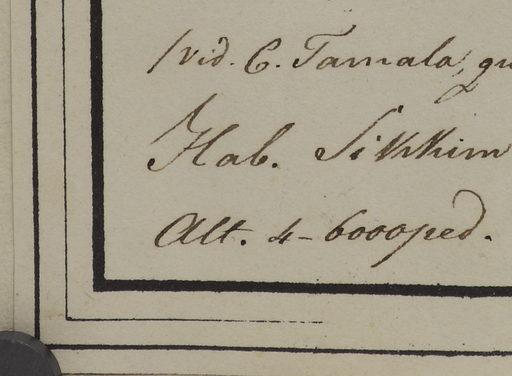 (vid. C. Tamala, qu
Hab. Sikkim
Alt. 4-6000ped.